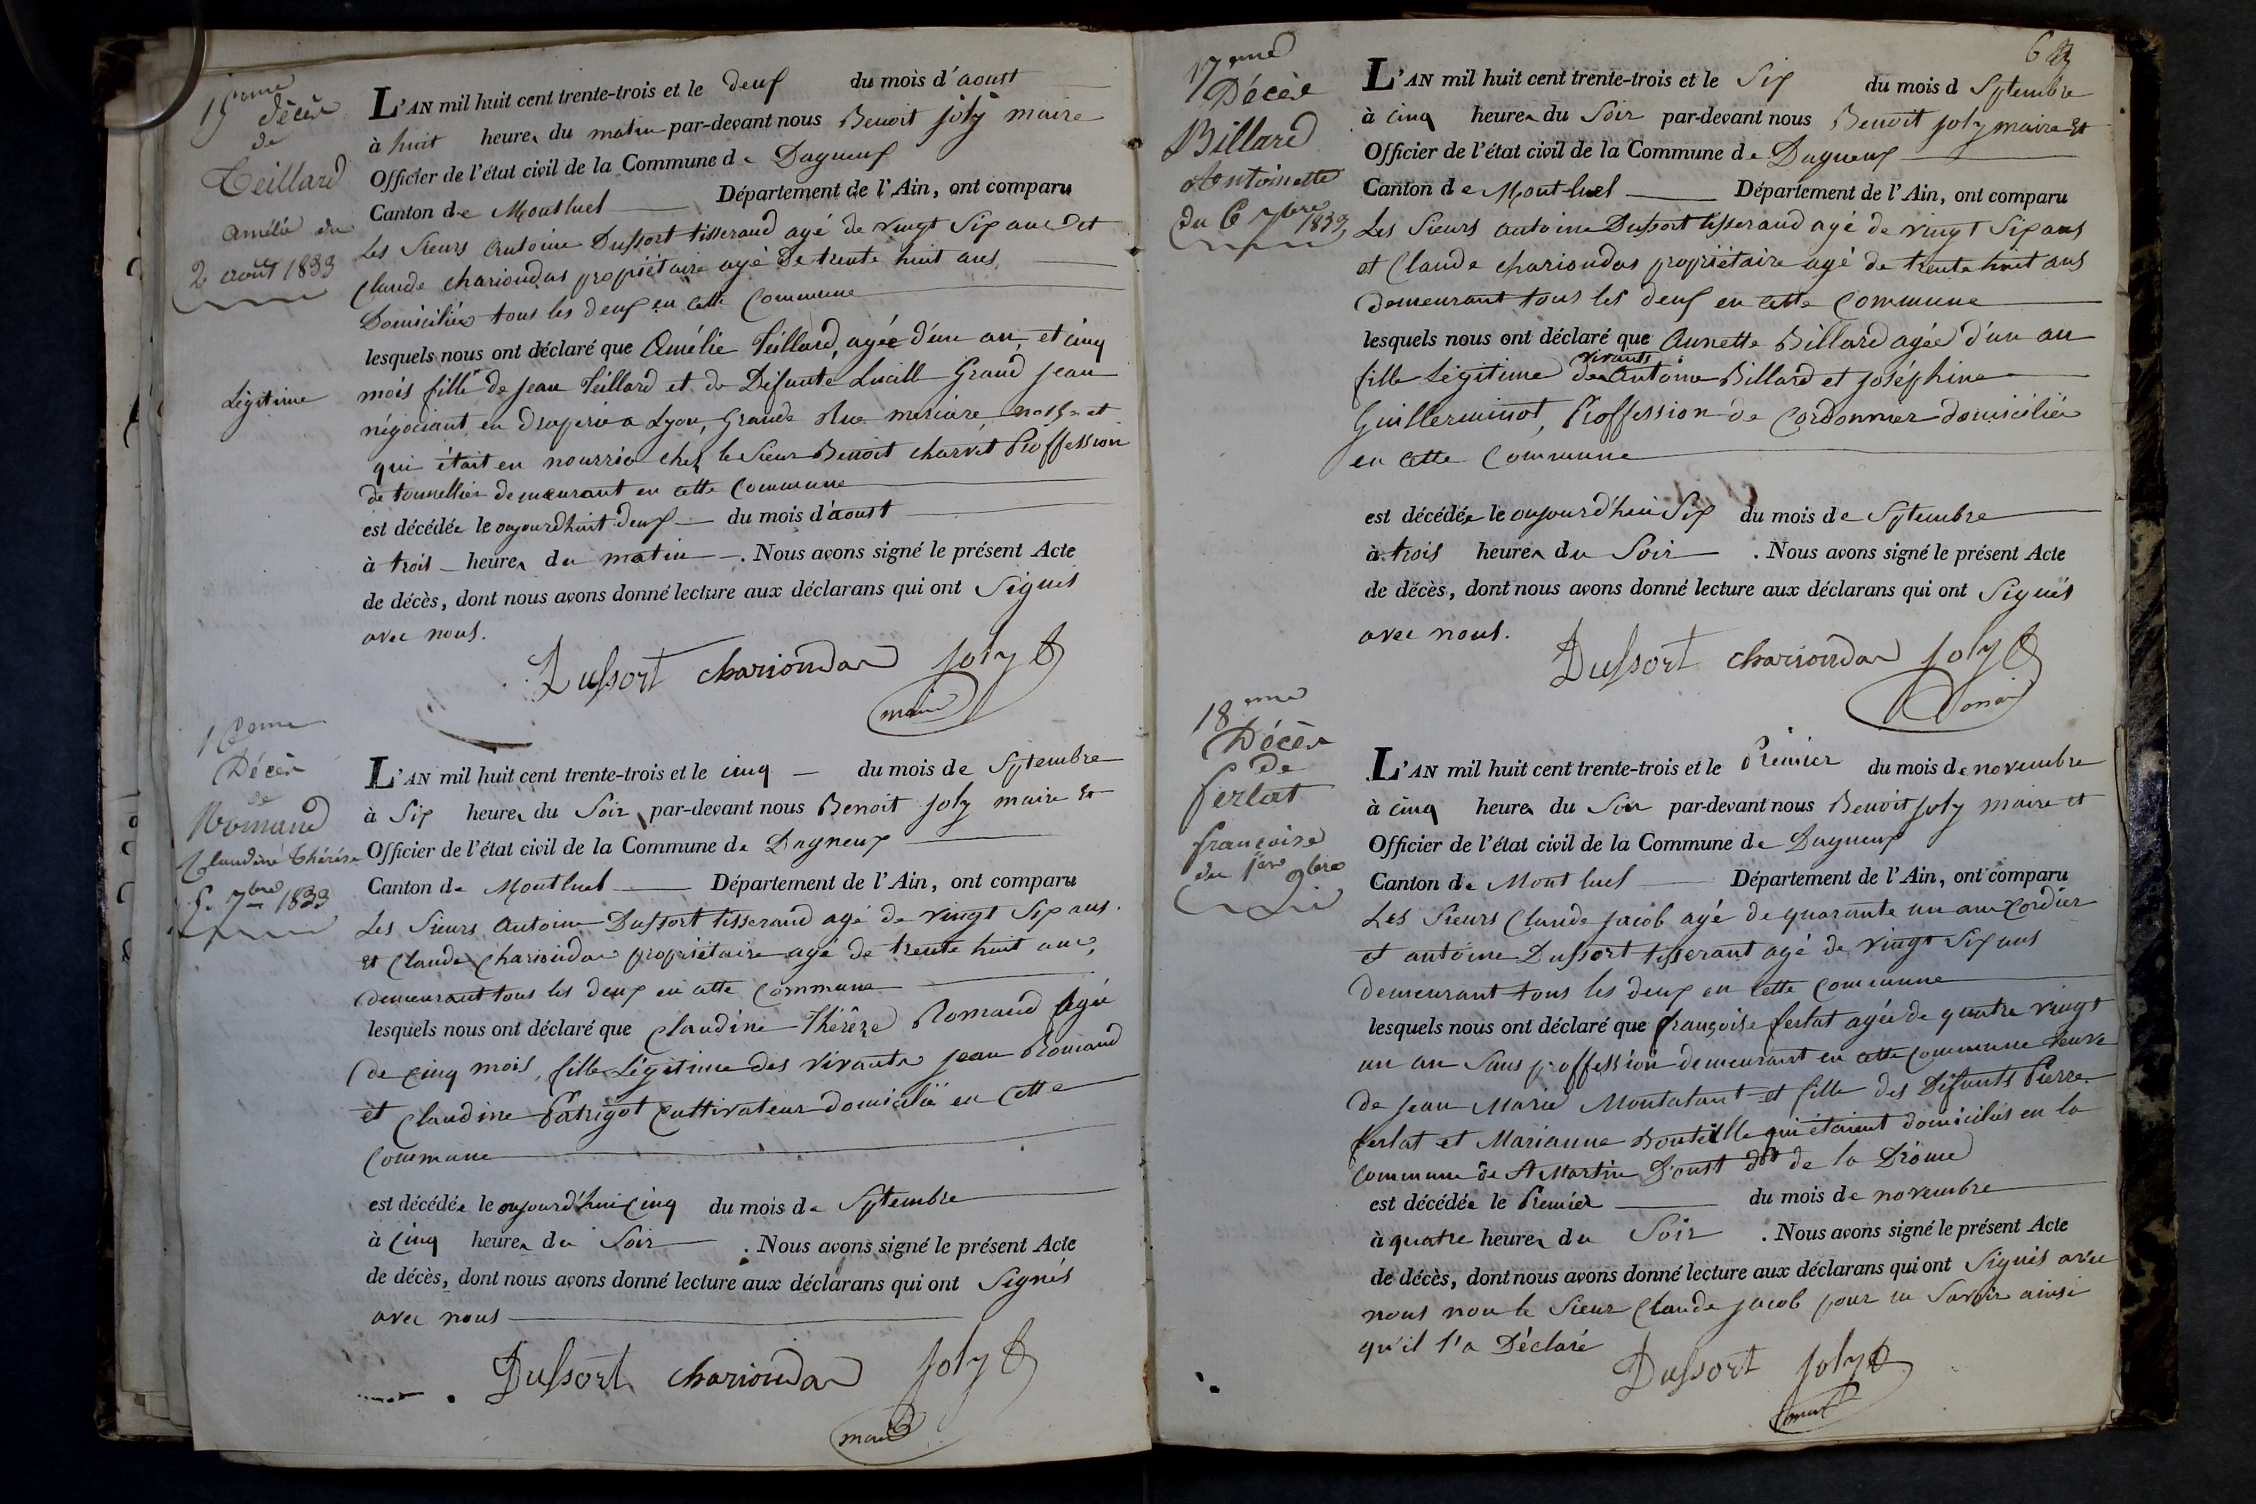 15eme
décès
de
Teillard
Amélie du
2 aout 1833
L'AN mil huit cent trente-trois et le deux du mois d'aoust
à huit heures du matin par-devant nous Benoit Joly maire
Officier de l'état civil de la Commune de Dagneux
Canton de Montluel Département de l'Ain, ont comparu
Les Sieurs Antoine Dussort tisserand agé de vingt Six ans et
Claude chariondas propriétaire agé de trente huit ans
Domiciliés tous les deux en cette Commune
lesquels nous ont déclaré que Amélie Teillard, agée d'un an et cinq
Légitime
mois fille de Jean Teillard et de Defunte Lucille Grand Jean
négociant en Draperie a Lyon, Grande Rue merciere et
qui était en nourrice chez le Sieur Benoit charvet Proffession
de tonnellier demeurant en cette Commune
est décédée le aujourdhuit deux du mois d'aoust
à trois heures du matin . Nous avons signé le présent Acte
de décès, dont nous avons donné lecture aux déclarans qui ont Signés
avec nous.
Dussort chariondas Joly
maire
16eme
Décès
de
Romand
Claudine Thérése
5. 7bre 1833
L'AN mil huit cent trente-trois et le cinq du mois de Septembre
à Six heures du Soir par-devant nous Benoit Joly maire Et
Officier de l'état civil de la Commune de Dagneux
Canton de Montluel Département de l'Ain, ont comparu
Les Sieurs Antoine Dussort tisserand agé de vingt Six ans.
Et Claude Chariondas propriétaire agé de trente huit ans,
demeurant tous les deux en cette Commune
lesquels nous ont déclaré que Claudine Thérèze Romand Agée
de Cinq mois, fille Légitime des vivants Jean Romand
et Claudine Patrigot Cultivateur domicilié en Cette
Commune
est décédée le aujourd'hui Cinq du mois de Septembre
à Cinq heures du Soir . Nous avons signé le présent Acte
de décès, dont nous avons donné lecture aux déclarans qui ont Signés
avec nous
Dussort chariondas Joly
maire
17eme
Décès
Billard
Antoinette
du 6 7bre 1833
L'AN mil huit cent trente-trois et le Six du mois d Septembre
à cinq heures du Soir par-devant nous Benoit Joly maire Et
Officier de l'état civil de la Commune de Dagneux
Canton de Mont-luel Département de l'Ain, ont comparu
Les Sieurs antoine Dussort tisserand agé de vingt Six ans
et Claude chariondas propriétaire agé de trente huit ans
demeurant tous les deux en cette Commune
lesquels nous ont déclaré que Annette Billard agée d'un an
vivants
fille Légitime des Antoine Billard et Joséphine
Guillerminot, Proffession de Cordonnier domiciliés
en cette Commune
est décédée le aujourd'hui Six du mois de Septembre
à trois heures du Soir . Nous avons signé le présent Acte
de décès, dont nous avons donné lecture aux déclarans qui ont Signés
avec nous.
Dussort chariondas Joly
18eme
Décès
de
ferlat
françoise
du 1er 9bre
L'AN mil huit cent trente-trois et le Premier du mois de novembre
à cinq heures du Soir par-devant nous Benoit Joly maire et
Officier de l'état civil de la Commune de Dagneux
Canton de Mont luel Département de l'Ain, ont comparu
Les Sieurs Claude Jacob agé de quarante un ans Cordier
et antoine Dussort tisserant agé de vingt Six ans
Demeurant tous les deux en cette commune
lesquels nous ont déclaré que françoise ferlat agée de quatre vingt
un an Sans proffession demeurant en cette commune veuve
de Jean Marie Montatant et fille des Défunts Pierre
ferlat et Marianne Bouteille qui étaient domiciliés en la
Commune de St Martin D'oust dpt de la Drôme
est décédée le Premier du mois de novembre
à quatre heures du Soir . Nous avons signé le présent Acte
de décès, dont nous avons donné lecture aux déclarans qui ont Signés avec
nous non le Sieur Claude Jacob pour ne Savoir ainsi
qu'il l'a Déclaré
Dussort Joly